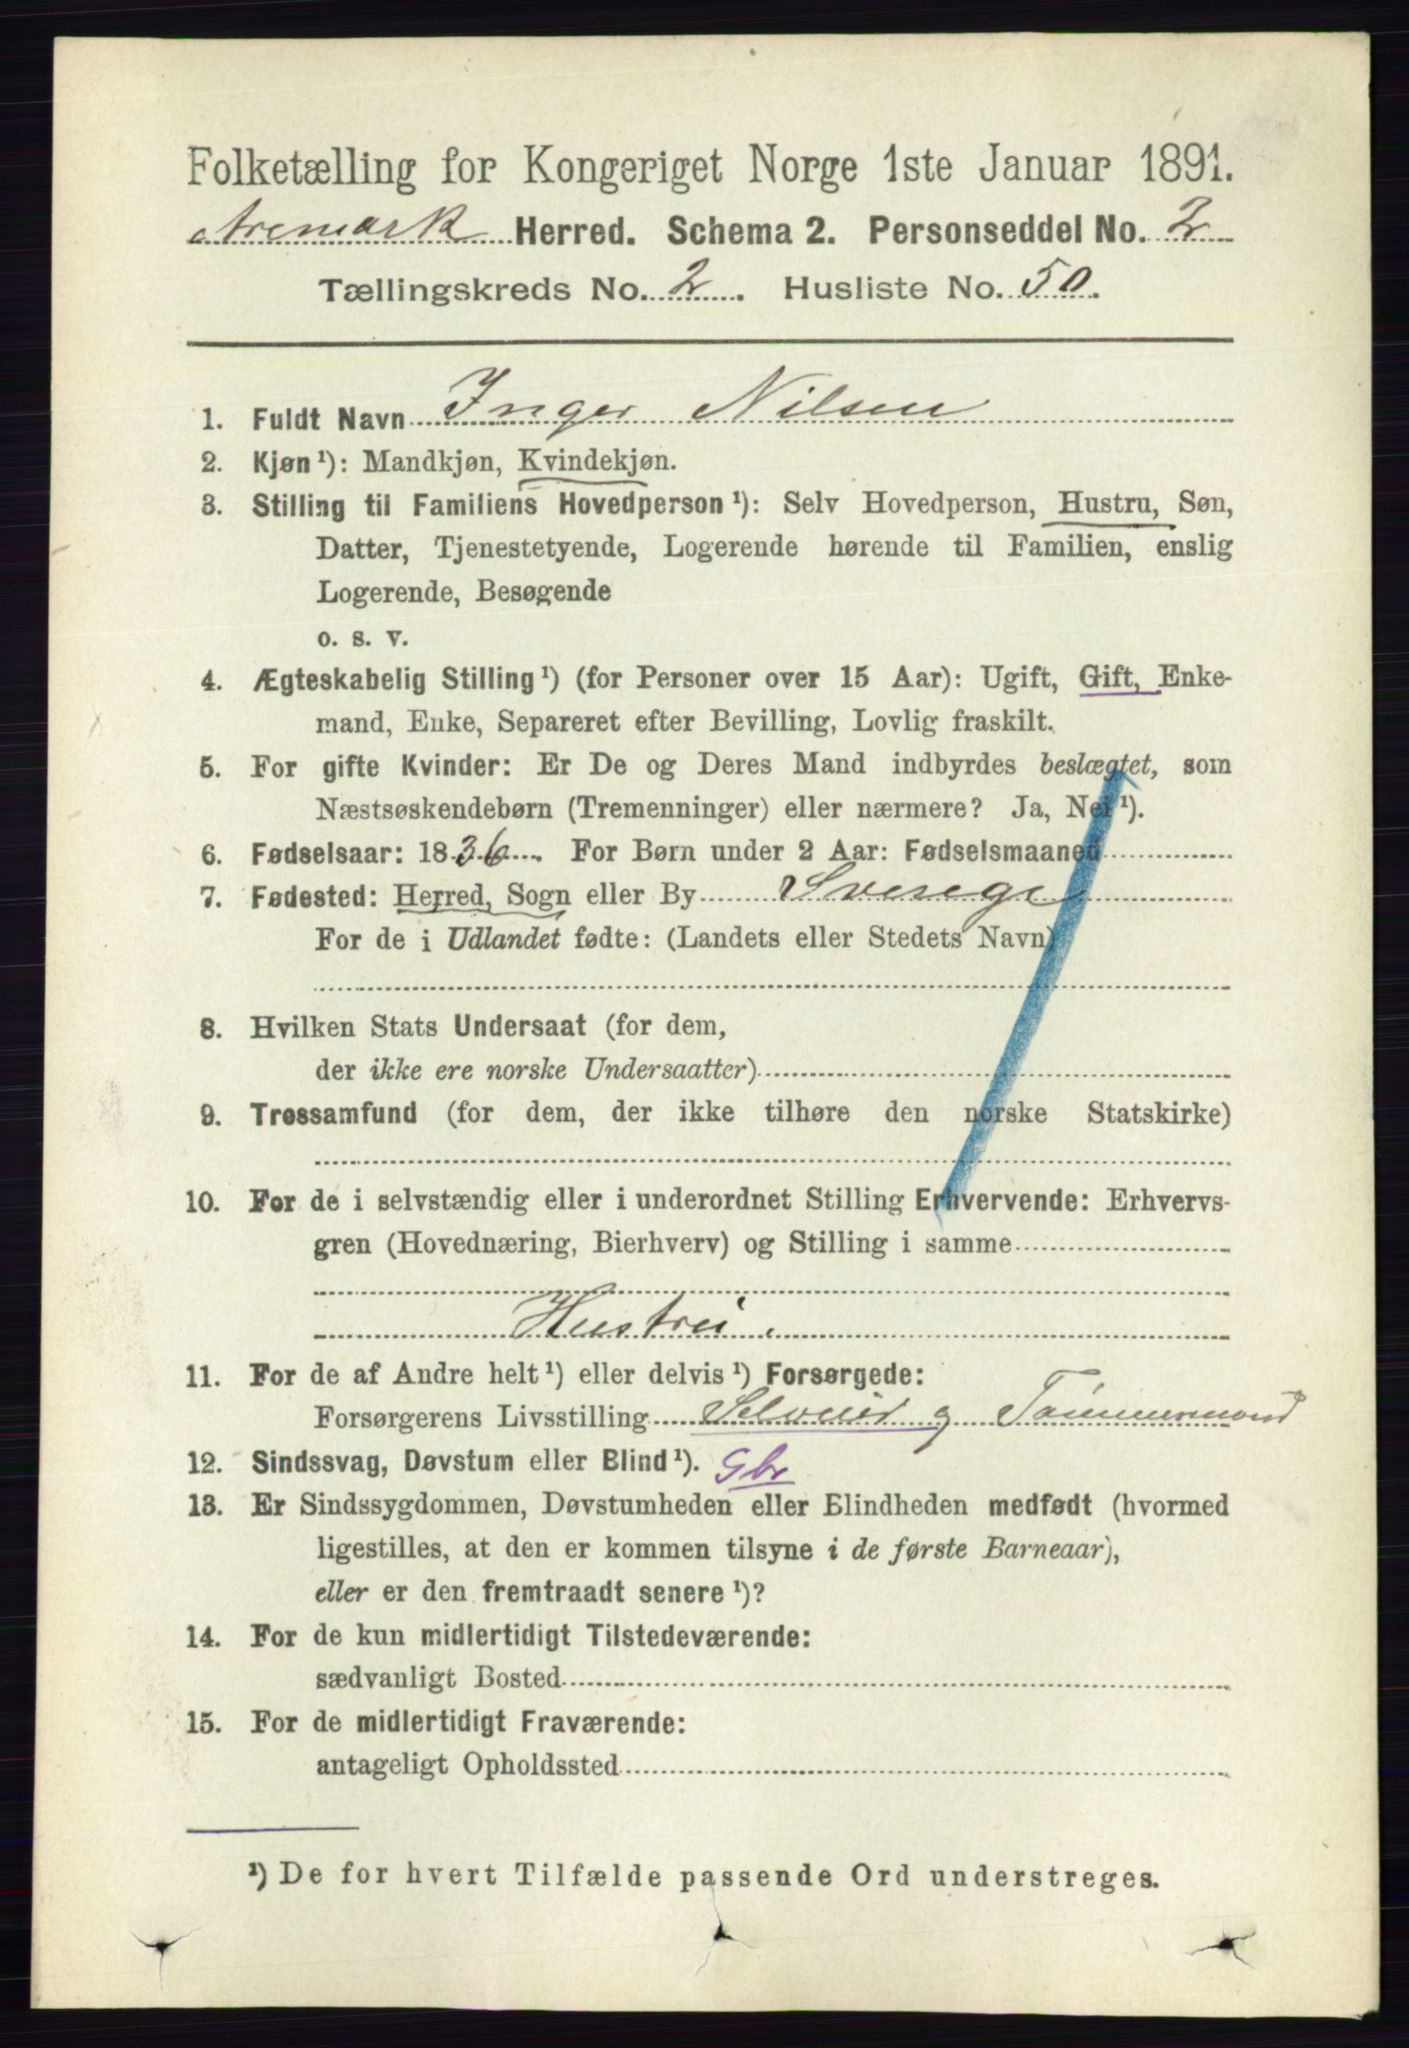 Folketælling for Kongeriget Norge 1ste Januar 1891.
Aremark Herred. Schema 2. Personseddel No. 2
Tællingskreds No. 2. Husliste No. 50.
1. Fuldt Navn Inger Nilsen
2. Kjøn ¹): Mandkjøn, Kvindekjøn.
3. Stilling til Familiens Hovedperson ¹): Selv Hovedperson, Hustru, Søn,
Datter, Tjenestetyende, Logerende hørende til Familien, enslig
Logerende, Besøgende
o. s. v.
4. Ægteskabelig Stilling ¹) (for Personer over 15 Aar): Ugift, Gift, Enke-
mand, Enke, Separeret efter Bevilling, Lovlig fraskilt.
5. For gifte Kvinder: Er De og Deres Mand indbyrdes beslægtet, som
Næstsøskendebørn (Tremenninger) eller nærmere? Ja, Nei ¹).
6. Fødselsaar: 1836. For Børn under 2 Aar: Fødselsmaaned
7. Fødested: Herred, Sogn eller By Sverege
For de i Udlandet fødte: (Landets eller Stedets Navn)
8. Hvilken Stats Undersaat (for dem,
der ikke ere norske Undersaatter)
9. Trossamfund (for dem, der ikke tilhøre den norske Statskirke)
10. For de i selvstændig eller i underordnet Stilling Erhvervende: Erhvervs-
gren (Hovednæring, Bierhverv) og Stilling i samme
Hustru.
11. For de af Andre helt ¹) eller delvis ¹) Forsørgede:
Forsørgerens Livsstilling Selveier og Tømmermand
12. Sindssvag, Døvstum eller Blind ¹). Gbr
13. Er Sindssygdommen, Døvstumheden eller Blindheden medfødt (hvormed
ligestilles, at den er kommen tilsyne i de første Barneaar),
eller er den fremtraadt senere ¹)?
14. For de kun midlertidigt Tilstedeværende:
sædvanligt Bosted
15. For de midlertidigt Fraværende:
antageligt Opholdssted
¹) De for hvert Tilfælde passende Ord understreges.